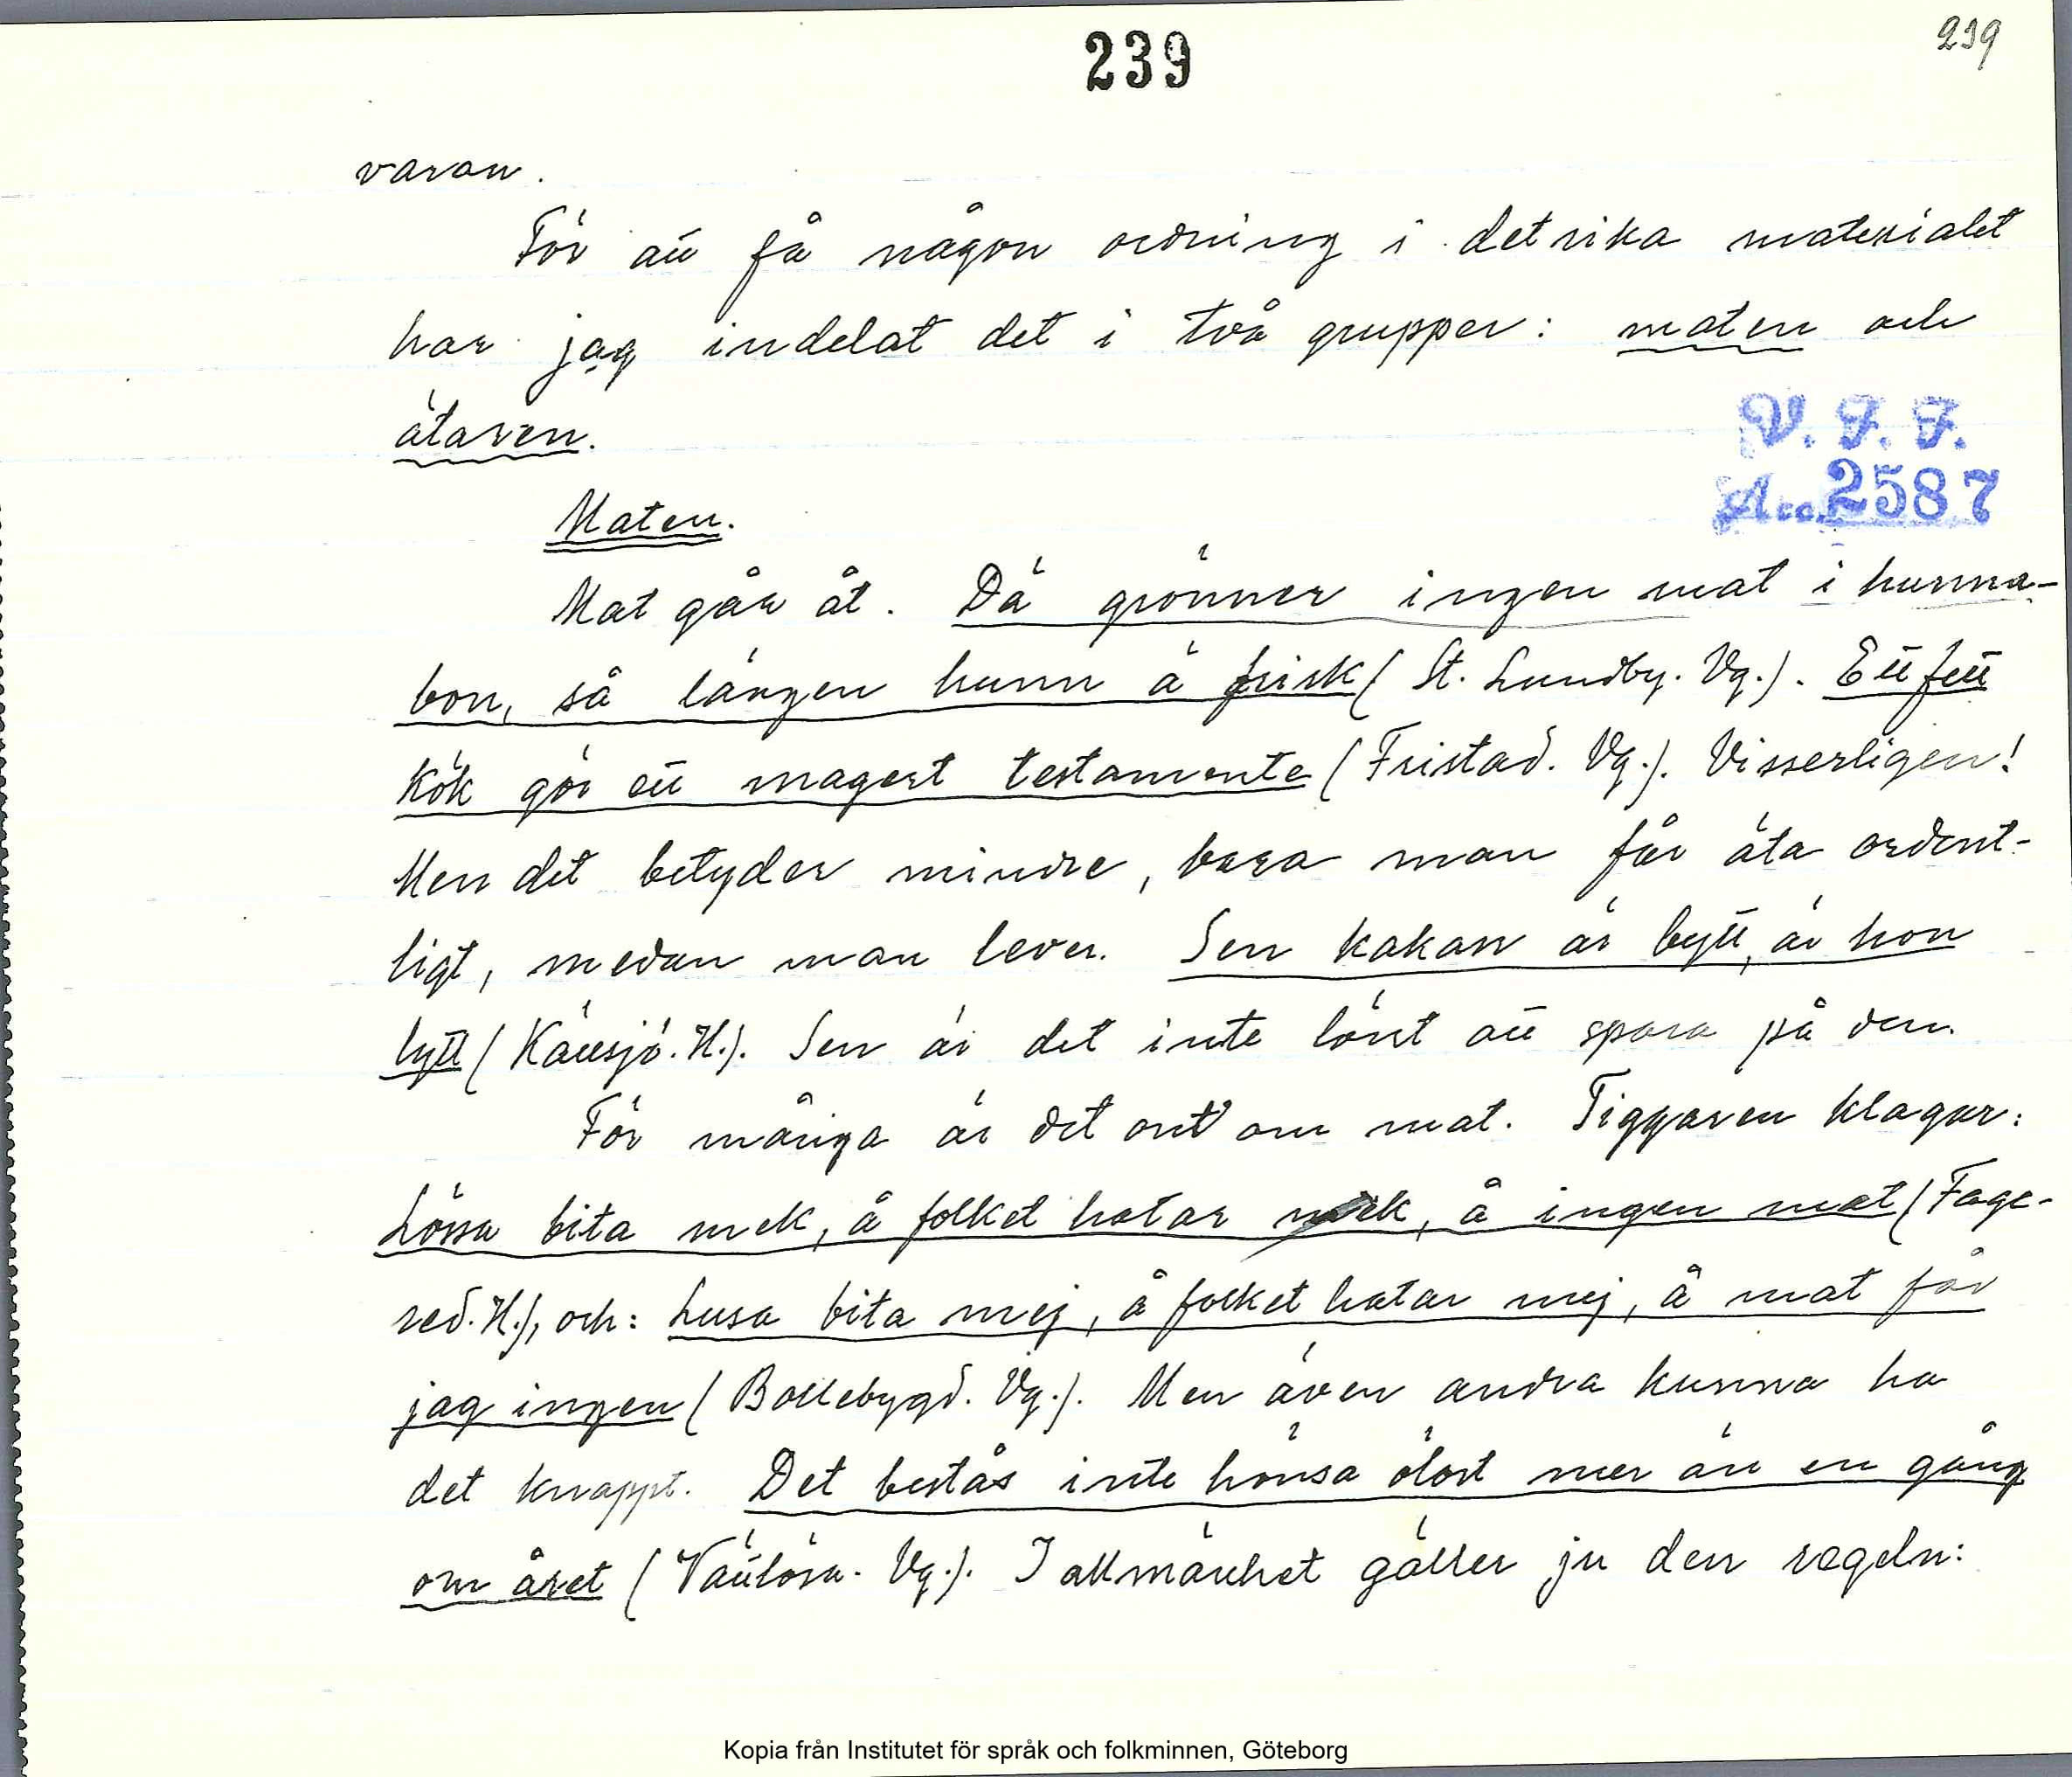 239
239
varan.
För att få någon ordning i det rika materialet
har jag indelat det i två grupper: maten och
ätaren.
V. F. F.
Acc. 2587
Maten.
Mat går åt. Dä grönner ingen mat i hunna-
bon, så längen hunn ä frisk (St. Lundby. Vg.). Ett fett
kök gör ett magert testamente (Fristad. Vg.). Visserligen!
Men det betyder mindre, bara man får äta ordent-
ligt, medan man lever. Sen kakan är bytt, är hon
lytt (Kättsjö. H.). Sen är det inte lönt att spara på den.
För många är det ont om mat. Tiggaren klagar:
Lössa bita mek, å folket hatar mek, å ingen mat (Fage-
red. H.), och: Lusa bita mej, å folket hatar mej, å mat får
jag ingen (Bollebygd. Vg.). Men även andra kunna ha
det knappt. Det bestås inte hönsa ölost mer än en gång
om året (Vättlösa. Vg.). I allmänhet gäller ju den regeln:
Kopia från Institutet för språk och folkminnen, Göteborg